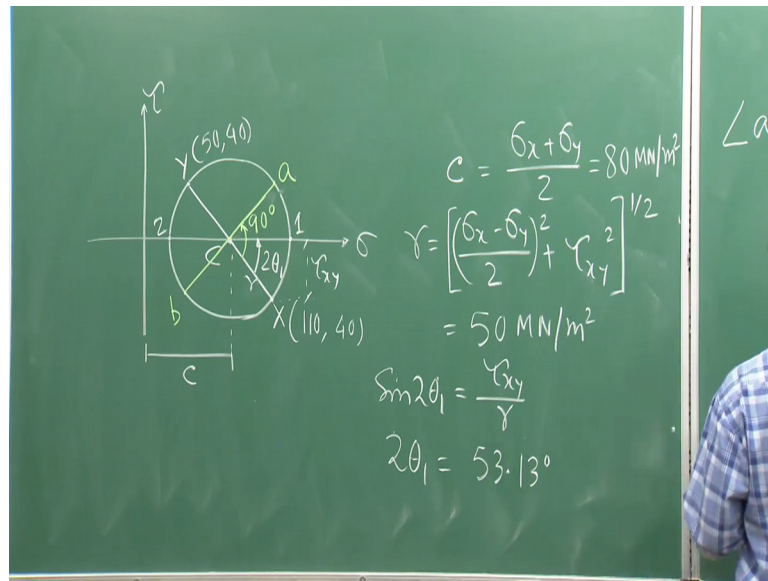 τ
Y(50,40)
a
90°
2
1
σ
C
2θ₁
r
τxy
b
X(110, 40)
C
C = (σx+σy)/2 = 80 MN/m²
r = [((σx-σy)/2)² + τxy²]^1/2
= 50 MN/m²
Sin2θ₁ = τxy/r
2θ₁ = 53.13°
∠a